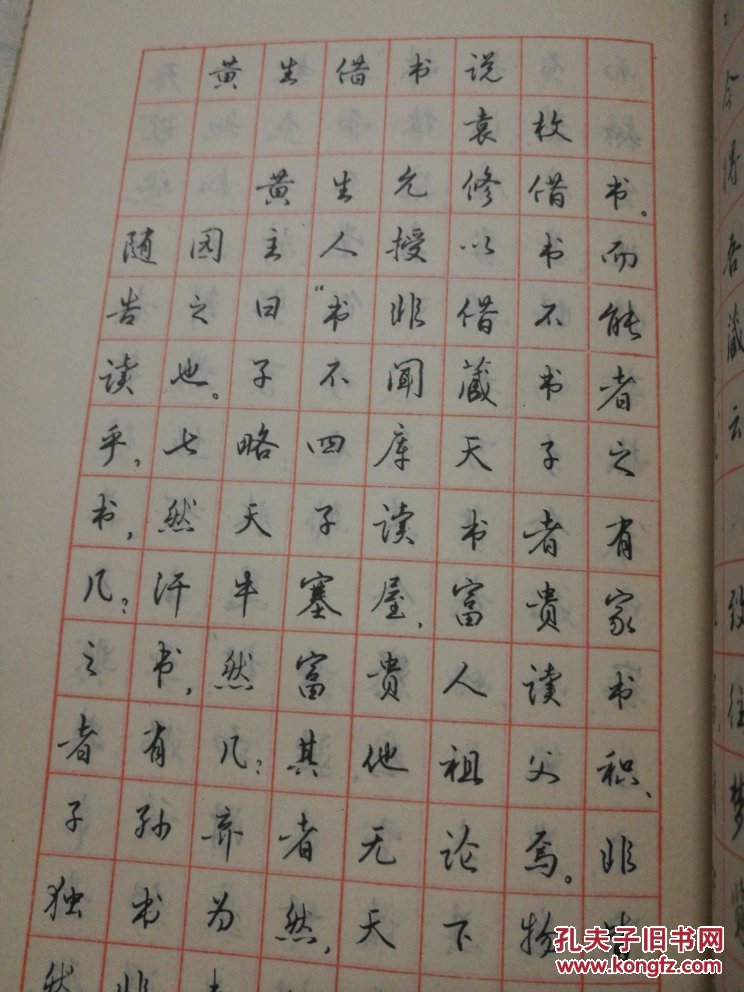 黄生借书说
袁枚
黄生允修借书。
随园主人授以书而
告之曰“书非借不能
读也。子不闻藏书者
乎，七略四库天子之
书，然天子读书者有
几？汗牛塞屋，富贵家
之书，然富贵人读书
者有几？其他祖父积、
子孙弃者无论焉。非
独书为然，天下物
孔夫子旧书网
www.kongfz.com